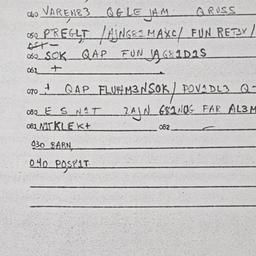 040 VARENR3 QGLE JAM QRUSS
050 PREGLT /AJNG81MAXC/ FUN RET3V/
060 SOK QAP FUN JAG81D2S
061 +
070 + QAP FLUHM3NSOK/ POV1DL3 Q-
080 E S N1T 2AJN 681NOG FAR AL3M
081 NITKLEK+ 082
030 BARN,
040 POSP1T